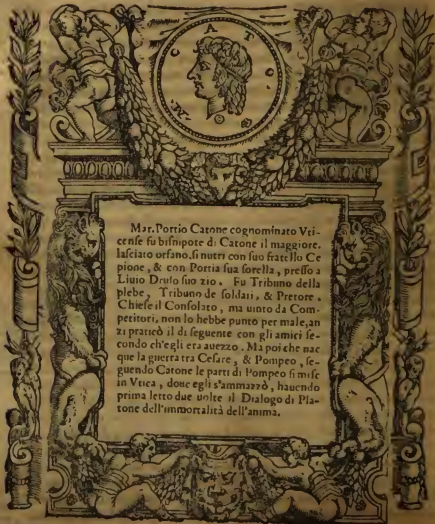 M. CATO.
Mar. Portio Catone cognominato Vti-
cense fu bisnipote di Catone il maggiore.
lasciato orfano, si nutri con suo fratello Ce
pione, & con Portia sua sorella, presso a
Liuio Druso suo zio. Fu Tribuno della
plebe, Tribuno de soldati, & Pretore.
Chiese il Consolato, ma uinto da Com-
petitori, non lo hebbe punto per male, an
zi praticò il dì seguente con gli amici se-
condo ch'egli era auezzo. Ma poi che nac
que la guerra tra Cesare, & Pompeo, se-
guendo Catone le parti di Pompeo si mise
in Vtica, doue egli s'ammazzò, hauendo
prima letto due uolte il Dialogo di Pla-
tone dell'immortalità dell'anima.